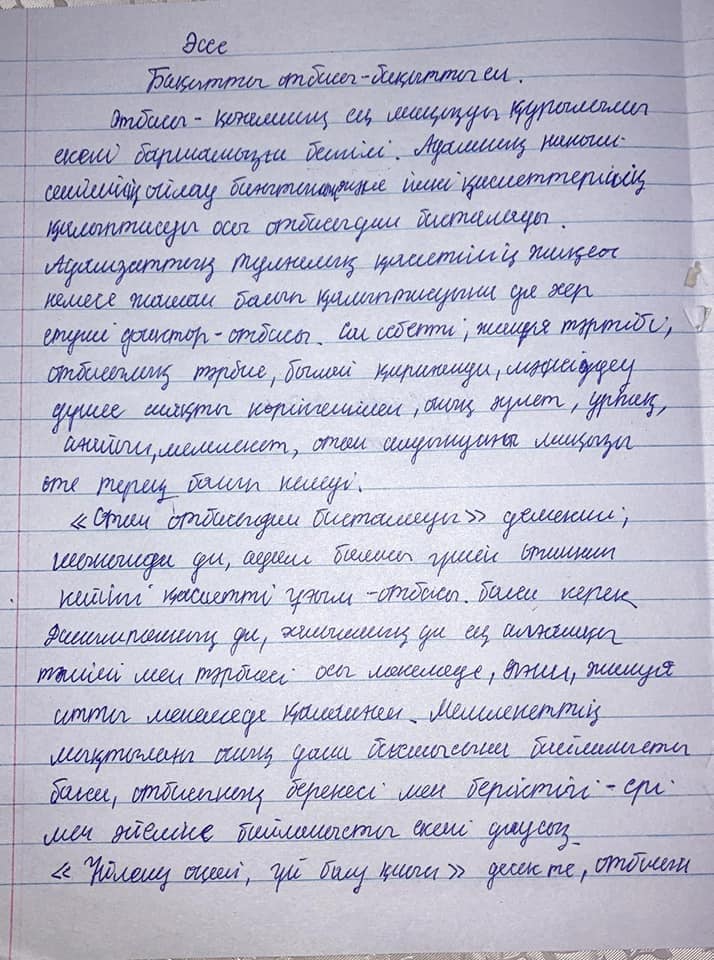 Эссе
Бақытты отбасы - бақытты ел.
Отбасы - қоғамның ең маңызды құрылымы
екені баршамызға белгілі. Адамның
ойлау ішкі қасиеттерінің
қалыптасуы осы отбасыдан басталады.
Адамзаттың тұлғалық қасиетінің жақсы
немесе жаман болып қалыптасуына да әсер
етуші фактор - отбасы. Сол себепті, жанұя тәртібі,
отбасылық тәрбие, былай қарағанда, мәнсіздеу
дүние сияқты көрінгенімен, оның әулет, ұрпақ,
мемлекет, отан алдындағы маңызы
өте терең болып келеді.
«Отан отбасыдан басталады» демекші,
қашанда да, адам баласы үшін отаннан
кейінгі қасиетті ұғым - отбасы болса керек.
да, ғалымның да ең алғашқы
тәлімі мен тәрбиесі осы мекемеде, яғни, жанұя
атты мекемеде қаланған. Мемлекеттің
мықтылығы оның дана басшысына байланысты
болса, отбасының берекесі мен беріктігі - ері
мен әйеліне байланысты екені даусыз.
«Үйлену оңай, үй болу қиын» десек те, отбасы